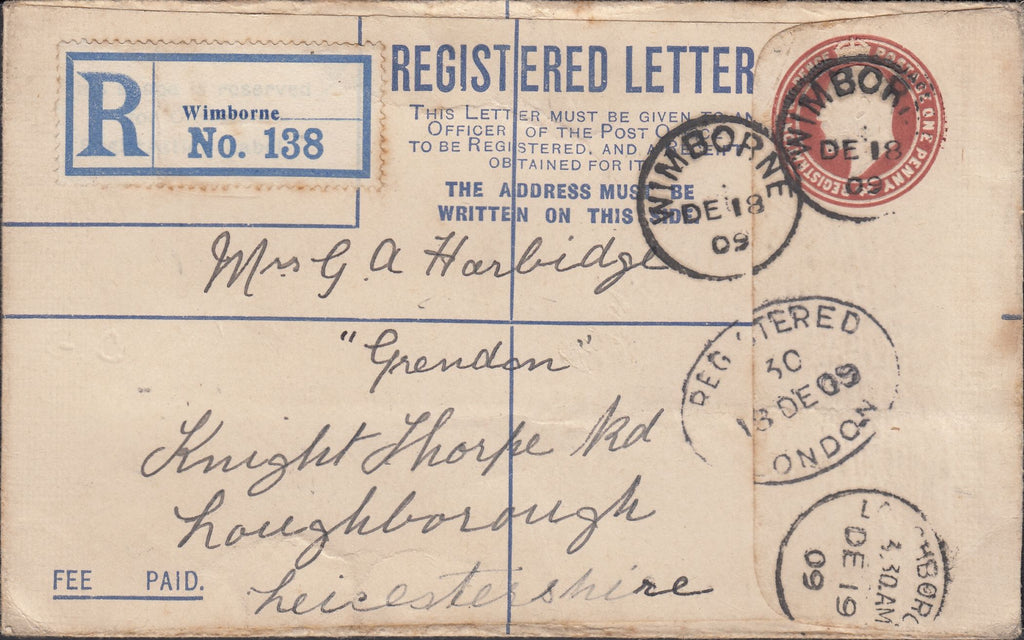 R
Wimborne
No. 138
REGISTERED LETTER
THIS LETTER MUST BE GIVEN TO AN
OFFICER OF THE POST
TO BE REGISTERED, AND A RECEIPT
OBTAINED FOR IT
THE ADDRESS MUST BE
WRITTEN ON THIS SIDE
POSTAGE ONE PENNY
WIMBORNE
DE 18
09
WIMBOR
DE 18
09
Mrs G A Harbidge
"Grendon"
Knight Thorpe Rd
Loughborough
Leicestershire
REGISTERED
30
18 DE 09
LONDON
3.30AM
DE 19
09
FEE PAID.